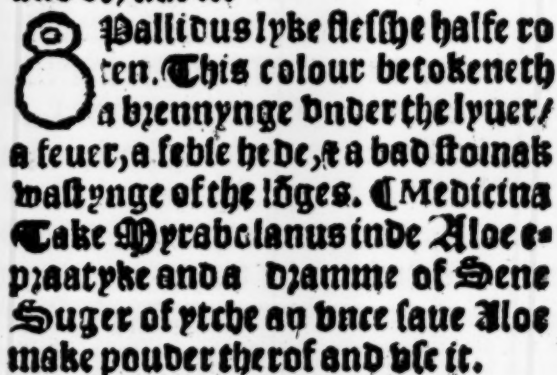 8 Pallidus lyke flesshe halfe ro
ten. ¶ This colour betokeneth
a brennynge vnder the lyuer/
a feuer, a feble hede, & a bad stomak
wastynge of the lōges. ¶ Medicina
¶ Take Myrabolanus inde Aloe e-
praatyke and a dramme of Sene
Suger of ytche an vnce saue Aloe
make pouder therof and vse it.